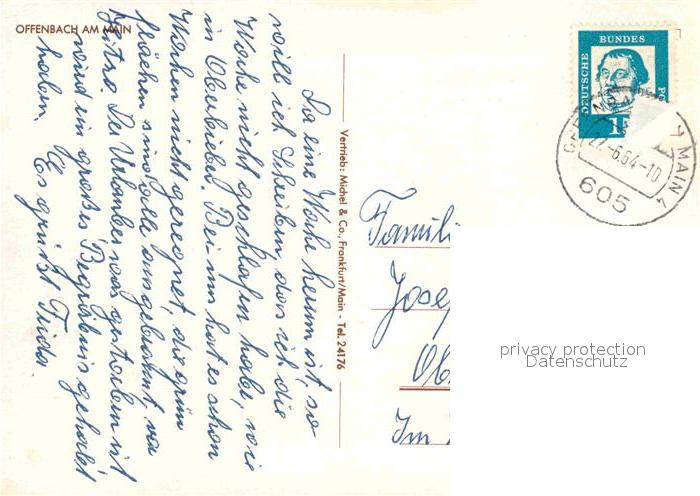 OFFENBACH AM MAIN
Da eine Woche herum ist, so
will ich schreiben, das ich die
Woche nicht geschlafen habe, wie
in Oberbieber. Bei uns hat es schon
Wochen nicht geregnet, die grün
flächen sind alle ausgebrannt, von
Hitze. Der Urlauber was gestorben ist
wird ein großes Begräbnis gehabt
haben. Es grüßt Frieda
Vertrieb: Michel & Co., Frankfurt/Main - Tel. 24176
DEUTSCHE BUNDES PO
27.-6.64-10
MAIN 7
605
Famili
Josef
Ob
Im
privacy protection
Datenschutz